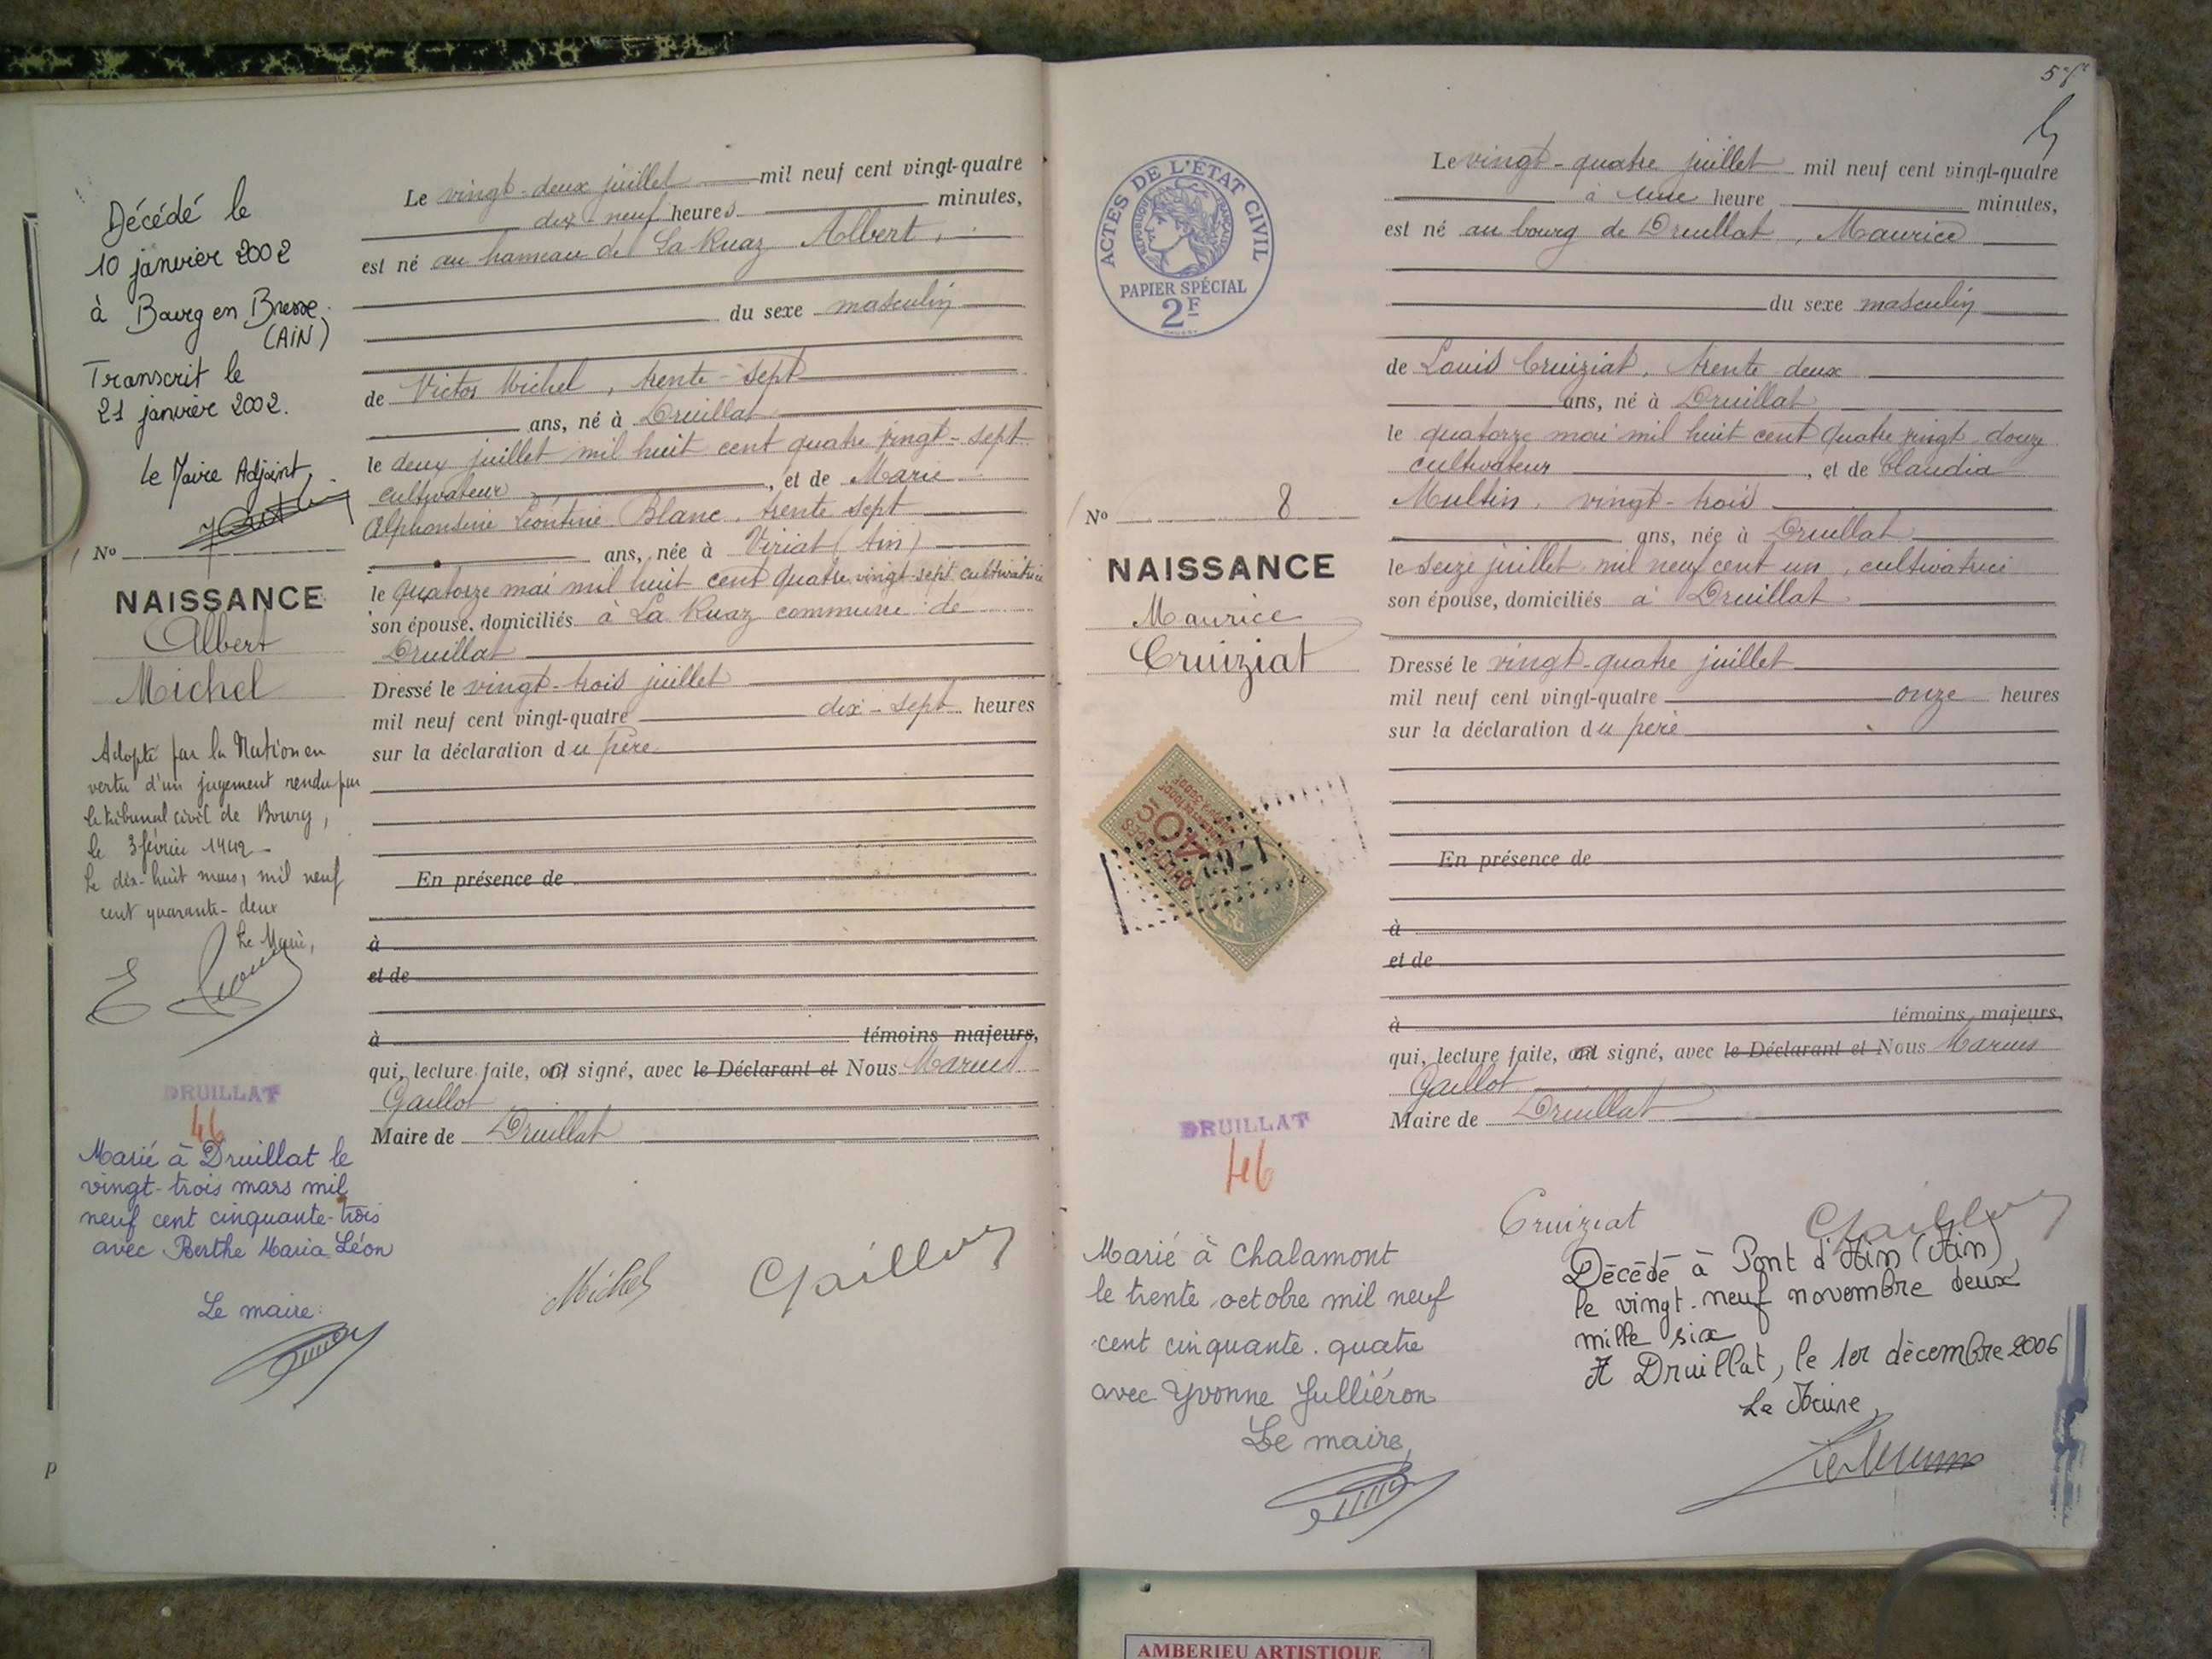 Décédé le
10 janvier 2002
à Bourg en Bresse
(AIN)
Transcrit le
21 janvier 2002.
Le Maire Adjoint,
No
NAISSANCE
Albert
Michel
Adopté par la Nation en
vertu d'un jugement rendu par
le tribunal civil de Bourg,
le 3 février 1942 -
Le dix-huit mars, mil neuf
cent quarante-deux
Le Maire,
DRUILLAT
46
Marié à Druillat le
vingt-trois mars mil
neuf cent cinquante-trois
avec Berthe Maria Léon
Le maire:
Le vingt-deux juillet mil neuf cent vingt-quatre
dix-neuf heures minutes,
est né au hameau de La Ruaz Albert,
du sexe masculin
de Victor Michel, trente-sept
ans, né à Druillat
le deux juillet mil huit cent quatre vingt-sept
cultivateur, et de Marie
Alphonsine Léontine Blanc, trente sept
ans, née à Viriat (Ain)
le quatorze mai mil huit cent quatre vingt-sept cultivatrice
son épouse, domiciliés à La Ruaz commune de
Druillat
Dressé le vingt-trois juillet
mil neuf cent vingt-quatre dix-sept heures
sur la déclaration du père
En présence de
à
et de
à témoins majeurs,
qui, lecture faite, a signé, avec le Déclarant et Nous Marius
Gaillot
Maire de Druillat
Michel
P
5
ACTES DE L'ÉTAT CIVIL
RÉPUBLIQUE FRANÇAISE
PAPIER SPÉCIAL
2F
No 8
NAISSANCE
Maurice
Cruiziat
DRUILLAT
46
Marié à Chalamont
le trente octobre mil neuf
cent cinquante-quatre
avec Yvonne Julliéron
Le maire,
Le vingt-quatre juillet mil neuf cent vingt-quatre
à une heure minutes,
est né au bourg de Druillat, Maurice
du sexe masculin
de Louis Cruiziat, trente deux
ans, né à Druillat
le quatorze mai mil huit cent quatre vingt-douze
cultivateur, et de Claudia
vingt-trois
ans, née à Druillat
le seize juillet mil neuf cent un, cultivatrice
son épouse, domiciliés à Druillat
Dressé le vingt-quatre juillet
mil neuf cent vingt-quatre onze heures
sur la déclaration du père
En présence de
à
et de
à témoins majeurs,
qui, lecture faite, a signé, avec le Déclarant et Nous Marius
Gaillot
Maire de Druillat
Cruiziat
Décédé à Pont d'Ain (Ain)
le vingt-neuf novembre deux
mille six
A Druillat, le 1er décembre 2006
Le Maire,
AMBERIEU ARTISTIQUE